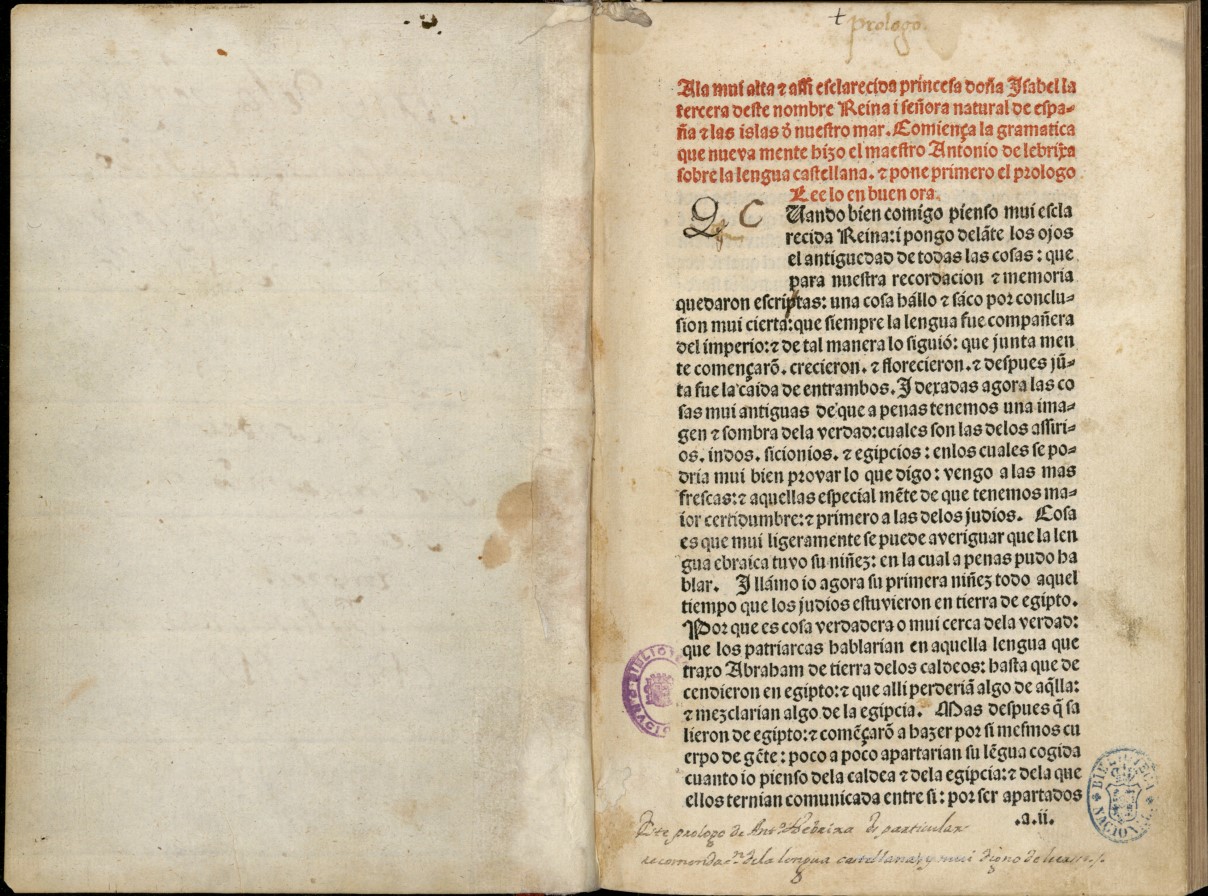 t prologo.
Ala mui alta ⁊ assi esclarecida princesa doña Isabel la
tercera deste nombre Reina i señora natural de espa-
ña ⁊ las islas ð nuestro mar. Comiença la gramatica
que nueva mente hizo el maestro Antonio de lebrixa
sobre la lengua castellana. ⁊ pone primero el prologo
Lee lo en buen ora.
Q C Uando bien comigo pienso mui escla
recida Reina: i pongo delãte los ojos
el antiguedad de todas las cosas: que
para nuestra recordacion ⁊ memoria
quedaron escriptas: una cosa hállo ⁊ sáco por conclu-
sion mui cierta: que siempre la lengua fue compañera
del imperio: ⁊ de tal manera lo siguió: que junta men
te començarõ. crecieron. ⁊ florecieron. ⁊ despues jũ-
ta fue la caida de entrambos. I dexadas agora las co
sas mui antiguas de que a penas tenemos una ima-
gen ⁊ sombra dela verdad: cuales son las delos assiri-
os. indos. sicionios. ⁊ egipcios: enlos cuales se po-
dria mui bien provar lo que digo: vengo a las mas
frescas: ⁊ aquellas especial mẽte de que tenemos ma-
ior certidumbre: ⁊ primero a las delos judios. Cosa
es que mui ligeramente se puede averiguar que la len
gua ebraica tuvo su niñez: en la cual a penas pudo ha
blar. I llámo io agora su primera niñez todo aquel
tiempo que los judios estuvieron en tierra de egipto.
Por que es cosa verdadera o mui cerca dela verdad:
que los patriarcas hablarian en aquella lengua que
traxo Abraham de tierra delos caldeos: hasta que de
cendieron en egipto: ⁊ que alli perderiã algo de aq̃lla:
⁊ mezclarian algo de la egipcia. Mas despues q̃ sa
lieron de egipto: ⁊ comẽçarõ a hazer por si mesmos cu
erpo de gẽte: poco a poco apartarian su lẽgua cogida
cuanto io pienso dela caldea ⁊ dela egipcia: ⁊ dela que
ellos ternian comunicada entre si: por ser apartados
.a.ii.
Este prologo de Antº. Nebrixa es particular
recomendaⁿ. dela lengua castellana, y mui digno de
BIBLIOTECA NACIONAL
BIBLIOTECA NACIONAL